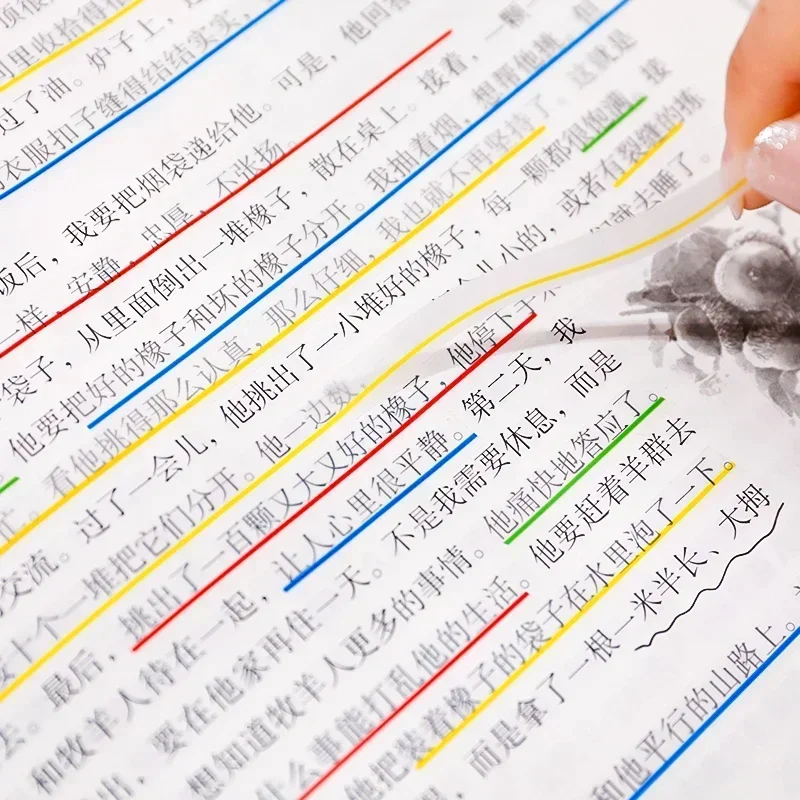 里收拾得
过了油。炉子上，
衣服扣子缝得结结实实，
饭后，我要把烟袋递给他。可是，他回答
一样，安静，忠厚，不张扬。
袋子，从里面倒出一堆橡子，散在桌上。接着，一颗
他要把好的橡子和坏的橡子分开。我抽着烟，想帮他挑，但
看他挑得那么认真，那么仔细，我也就不再坚持了。这就是
交流。过了一会儿，他挑出了一小堆好的橡子，每一颗都很饱满。接
十个一堆把它们分开。他一边数，
小的，或者有裂缝的拣
最后，挑出了一百颗又大又好的橡子，他停下手来
就去睡了。
和牧羊人待在一起，让人心里很平静。第二天，我
要在他家再住一天。不是我需要休息，而是
想知道牧羊人更多的事情。他痛快地答应了。
什么事能打乱他的生活。他要赶着羊群去
他把装着橡子的袋子在水里泡了一下。
而是拿了一根一米半长、大拇
和他平行的山路上。